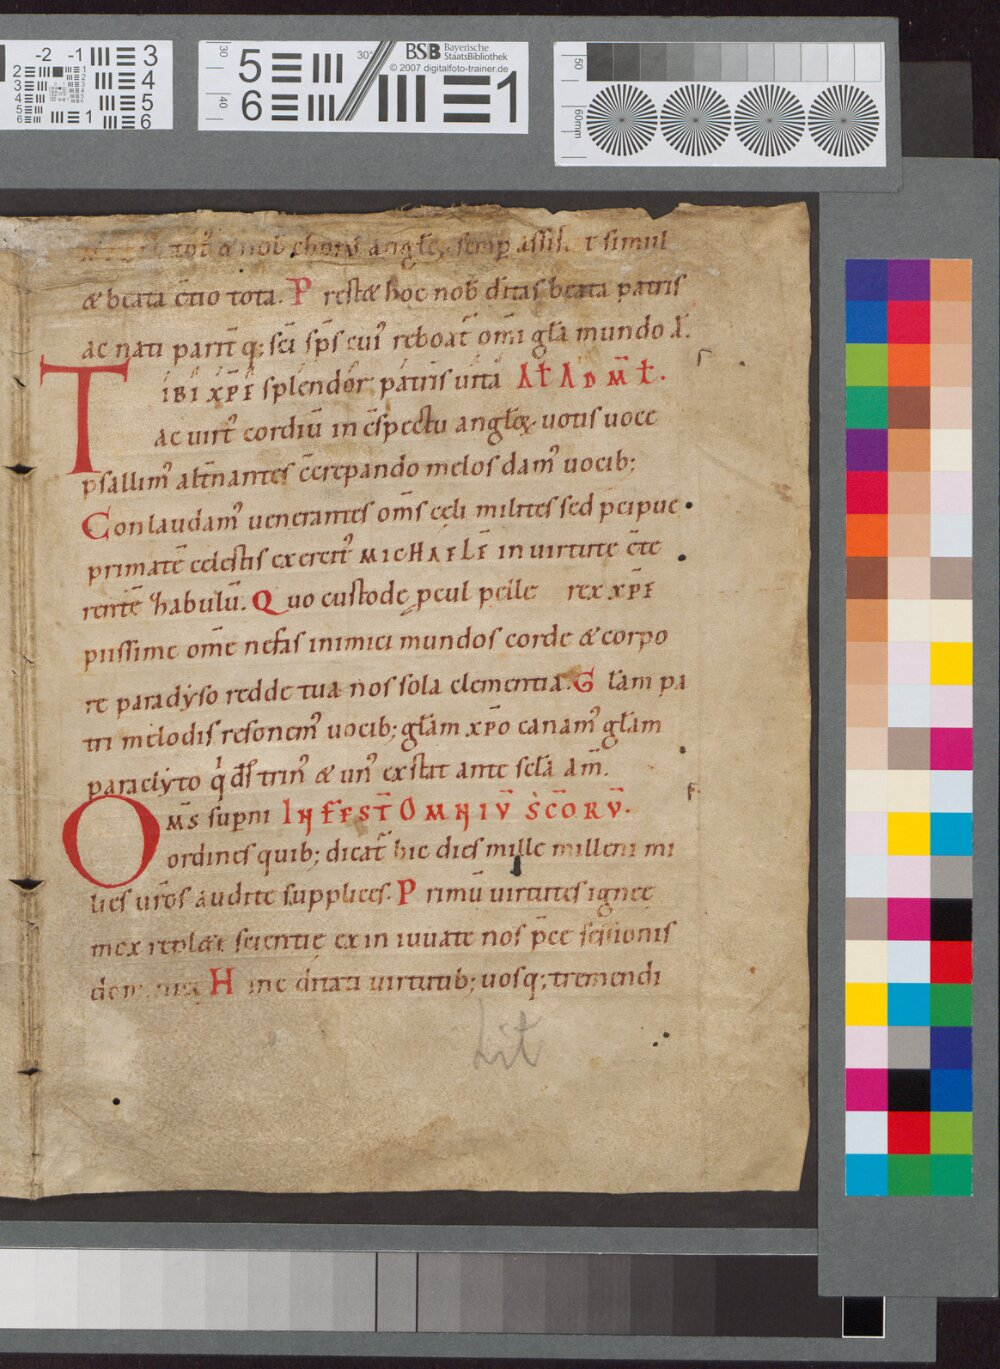 -2 -1 3
4
5
6
1
5
6
30
40
30°
BSB Bayerische StaatsBibliothek
© 2007 digitalfoto-trainer.de
1
50
60mm
tot᷒ & nob᷒ chorꝰ angł semp assist t simul
& beata c̄tio tota. P rest& hoc nob̄ ditas beata patris
ac nati parit̄ q; sc̄i sp̄s cuiꝰ reboat᷒ om̄i gła mundo
TIBI XP̄E splendor patris uita AŁ AD MŁ.
ac uirt᷒ cordiū in c̄spectu angłoꝝ uotis uoce
psallimꝰ alt̄nantes c̄crepando melos damꝰ uocib;
Conlaudamꝰ uenerantes om̄s cęli milites sed p̄cipue
primatē cęlestis exercitꝰ MICHAELĒ in uirtute c̄te
rentē zhabulū. Quo custode pcul pelle rex xp̄e
piissime om̄e nefas inimici mundos corde & corpo
re paradẏso redde tua nos sola clementia. G łam pa
tri melodis resonemꝰ uocib; głam xp̄o canamꝰ głam
paraclẏto q́ d̄s trinꝰ & unꝰ exstat ante sc̄la am̄.
OM̄S sup̄ni IN FEST̄ OMNIŪ SCORV̄.
ordines quib; dicat᷒ hic dies mille milleni mi
lies ur̄os audite supplices. P rimū uirtutes ignee
mox replete scientię exin iuuate nos p̄ce scissionis
H inc ditati uirtutib; uosq; tremendi
Lit